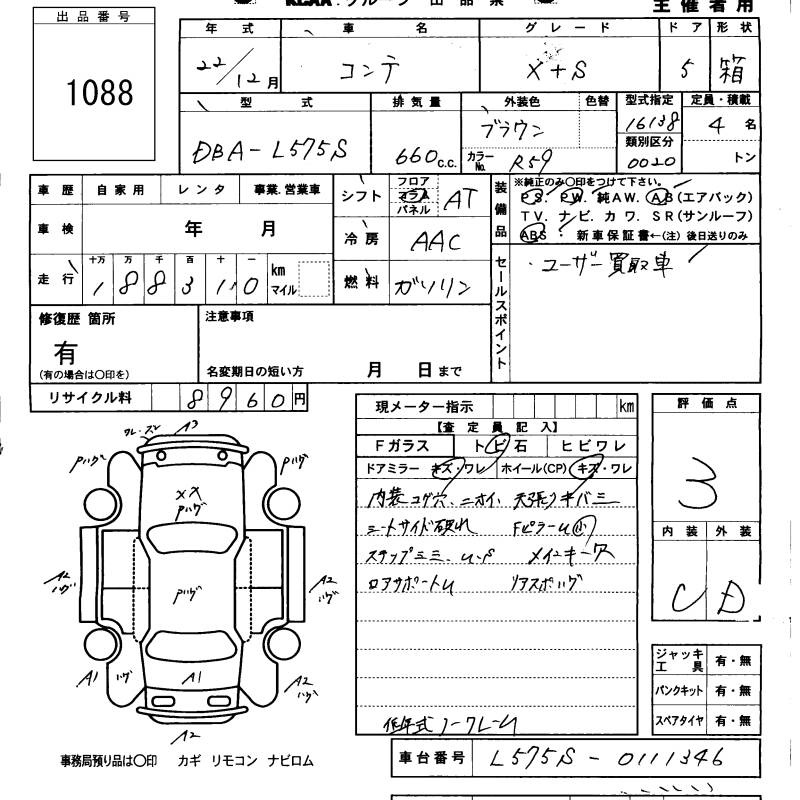 出品番号
1088
主催者用
年式 車名 グレード ドア 形状
22/12月 コンテ X+S 5 箱
型式 排気量 外装色 色替 型式指定 定員・積載
DBA-L575S 660c.c. ブラウン 16138 4名
カラーNo. R59 類別区分 0020 トン
車歴 自家用 レンタ 事業.営業車
車検 年 月
走行 十万 万 千 百 十 一
188310 km マイル
シフト フロア コラム パネル AT
冷房 AAC
燃料 ガソリン
装備品
※純正のみ○印をつけて下さい。
PS. PW. 純AW. AB(エアバック)
TV. ナビ. カワ. SR(サンルーフ)
ABS 新車保証書←(注)後日送りのみ
セールスポイント
・ユーザー買取車
修復歴 箇所
有
(有の場合は○印を)
注意事項
名変期日の短い方 月 日まで
リサイクル料 8960円
現メーター指示 km
【査定員記入】
Fガラス トビ石 ヒビワレ
ドアミラー キズ・ワレ ホイール(CP) キズ・ワレ
内装コゲ穴、ニオイ、天張りキバミ
シートサイド破れ FピラーU小
ステップミミ、U・P
ロアサポートU
評価点
3
内装 外装
C D
ジャッキ工具 有・無
パンクキット 有・無
スペアタイヤ 有・無
A3
ワレ・ズレ
パハゲ パハゲ
XX
パハゲ
A2 ハゲ パハゲ A2 ハゲ
A1 ハゲ A1 A2 ハゲ
A2
事務局預り品は○印 カギ リモコン ナビロム
車台番号 L575S-0111346